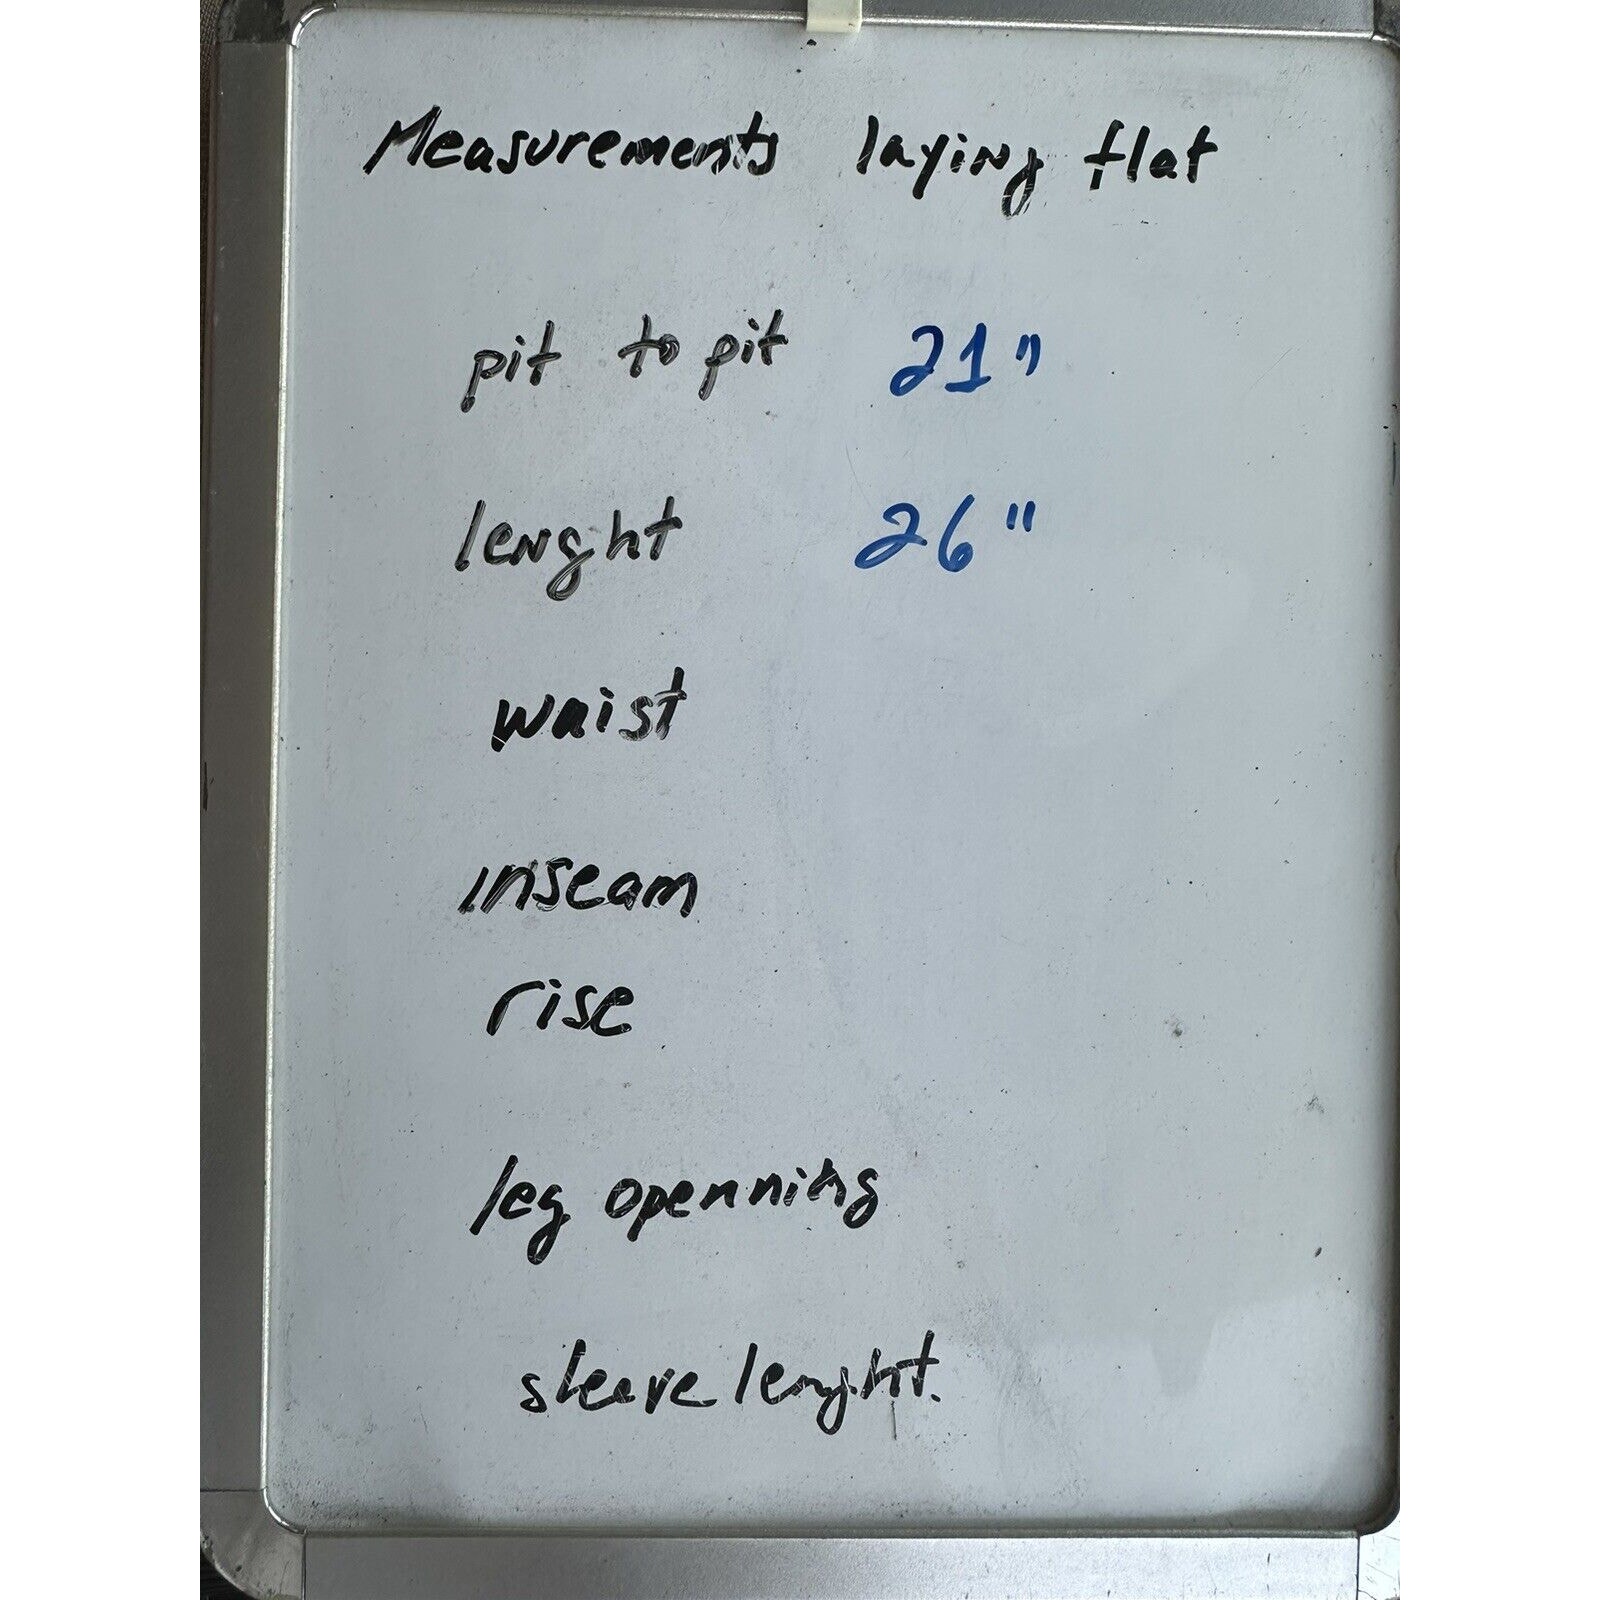 Measurements laying flat
pit to pit 21"
lenght 26"
waist
inseam
rise
leg openning
sleeve lenght.